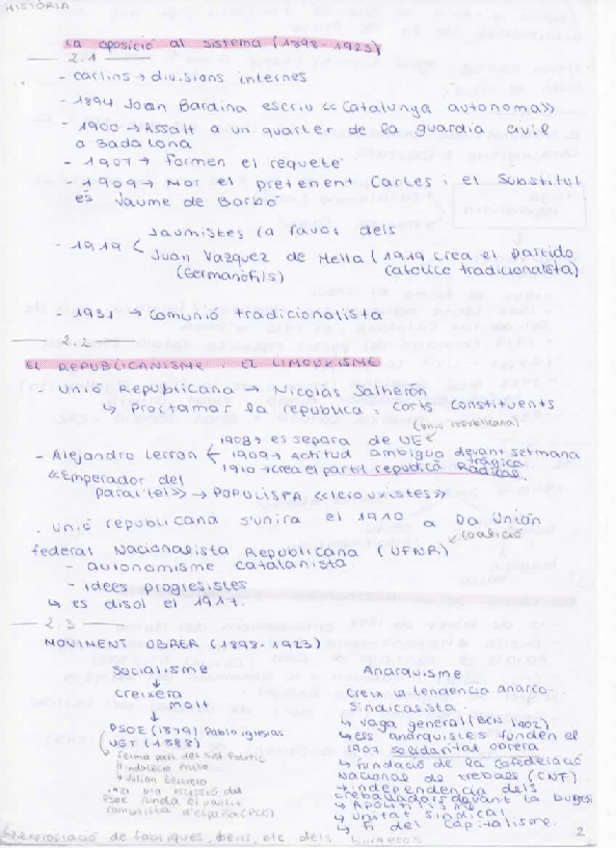 HISTÒRIA
La oposició al sistema (1898-1923)
2.1
- carlins → divisions internes
- 1894 Joan Bardina escriu «Catalunya autonoma»
- 1900 → Assalt a un quarter de la guardia civil
a Badalona
- 1907 → formen el requeté
- 1909 → Mor el pretenent Carles i el Substitut
és Jaume de Borbó
Jaumistes (a favor dels
- 1919 < Juan Vazquez de Mella (1919 crea el Partido
(Germanòfils) catolico tradicionalista)
- 1931 → Comunió tradicionalista
2.2
EL REPUBLICANISME i EL LERROUXISME
- Unió Republicana → Nicolás Salmerón
↳ Proclamar la republica i corts constituents
(Unió republicana)
1908 → es separa de UR
- Alejandro Lerroux < 1909 → actitud ambigua devant setmana tràgica
1910 → crea el partit republicà Radical.
«Emperador del
Paral·lel» → POPULISTA «lerrouxistes»
- Unió republicana s'unira el 1910 a La Unión
↙ Coalició
federal Nacionalista Republicana (UFNR)
- autonomisme catalanista.
- idees progresistes
↳ es disol el 1917.
2.3
MOVIMENT OBRER (1898-1923)
Socialisme
↓
creixerà
molt
↓
PSOE (1879) Pablo iglesias
UGT (1888)
forma part del sist. Politic
↳ indalecio Prieto
↳ Julian Besteiro
1921 una escissió del
PSOE funda el partit
comunista d'españa (PCE)
Anarquisme
Creix la tendencia anarco-
Sindicalista.
↳ vaga general (BCN 1902)
↳ els anarquistes funden el
1907 solidaritat obrera
↳ fundació de la Confederació
Nacional de treball (CNT)
→ independencia dels
treballadors davant la burgesi
↳ Apoliticisme
↳ unitat sindical
↳ Fi del capitalisme.
↳ expropiació de fabriques, bens, etc dels burgesos
2